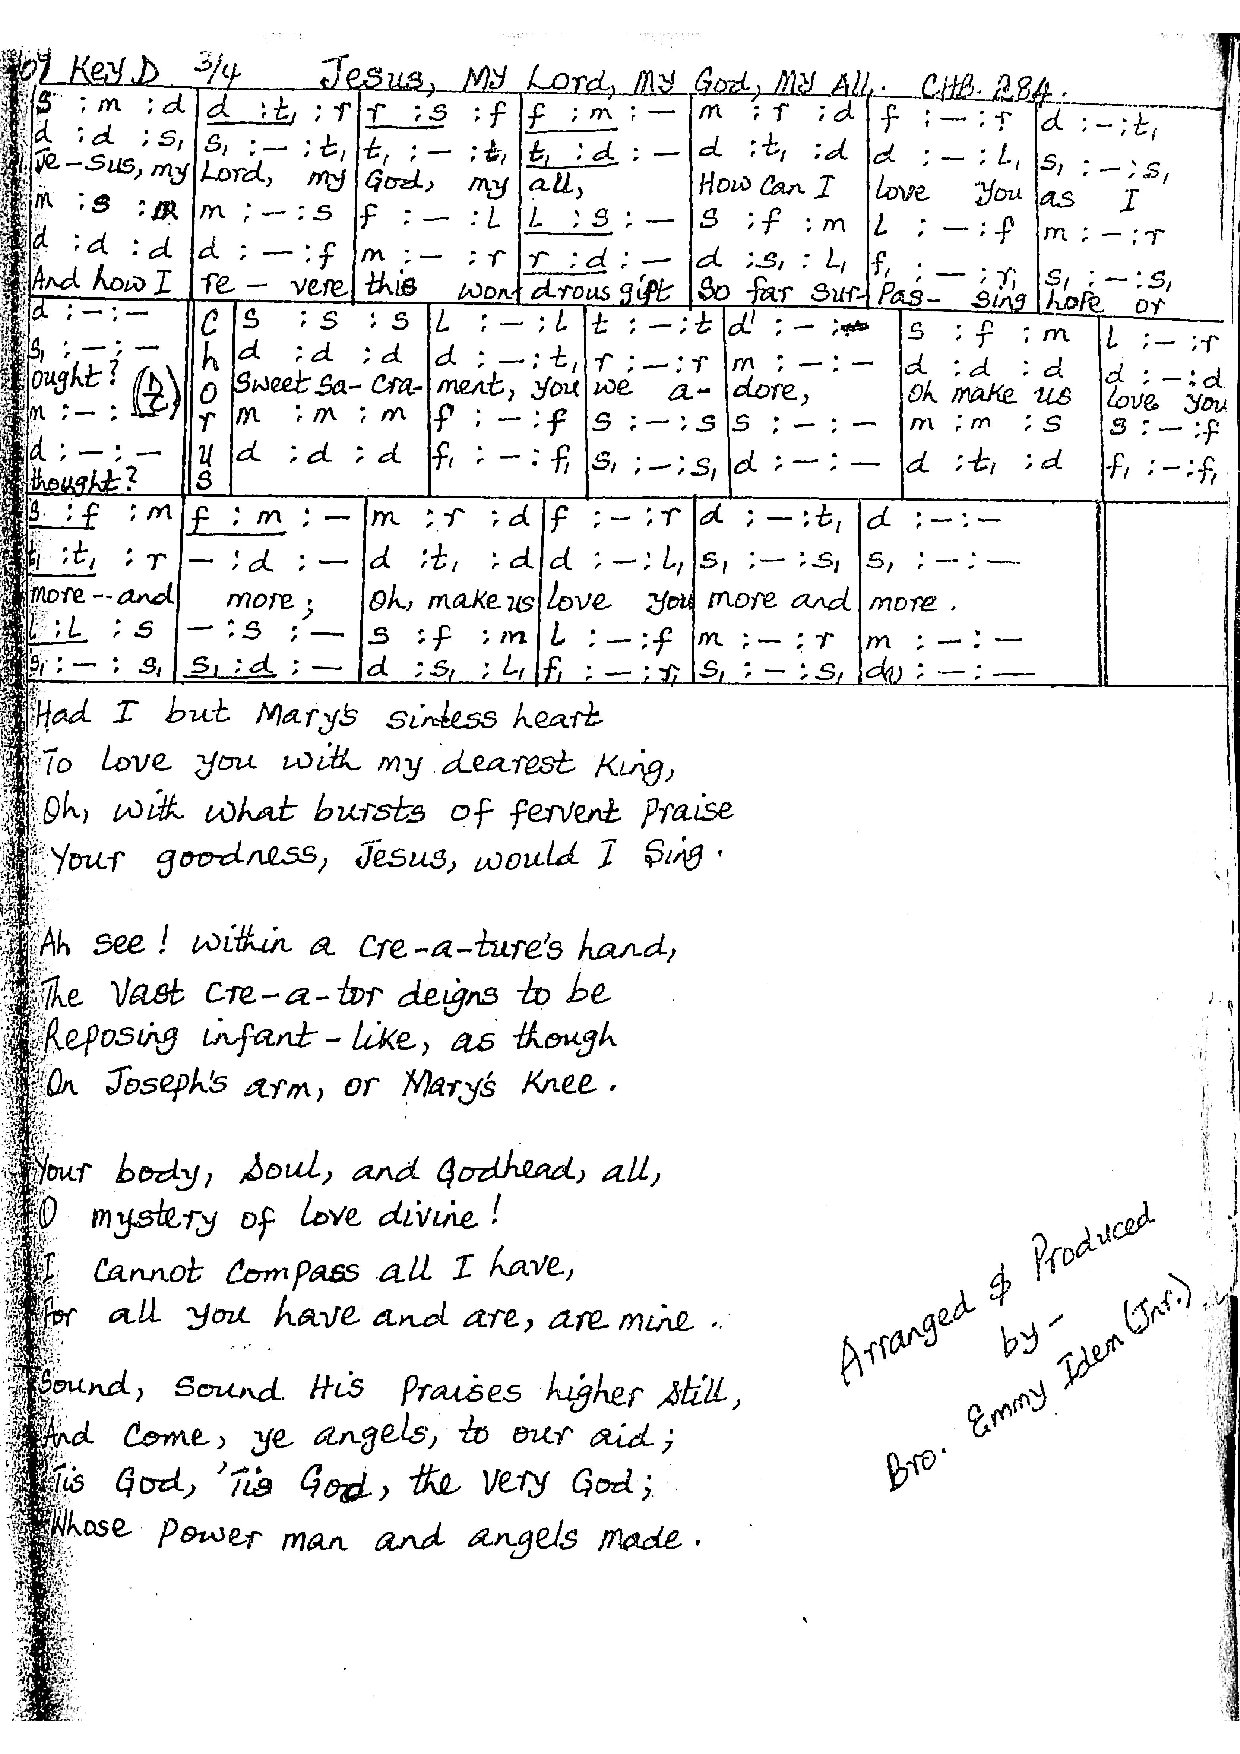 Key D 3/4 Jesus, My Lord, My God, My All. CHB. 284.
s : m : d | d : t₁ : r | r : s : f | f : m : — | m : r : d | f : — : r | d : — : t₁
d : d : s₁ | s₁ : — : t₁ | t₁ : — : t₁ | t₁ : d : — | d : t₁ : d | d : — : L₁ | s₁ : — : s₁
Je-sus, my | Lord, my | God, my | all, | How Can I | love you | as I
m : s : m | m : — : s | f : — : L | L : s : — | s : f : m | L : — : f | m : — : r
d : d : d | d : — : f | m : — : r | r : d : — | d : s₁ : L₁ | f₁ : — : r₁ | s₁ : — : s₁
And how I | re - vere | this won | drous gift | So far sur- | Pas - sing | hope or
d : — : — | Chorus | s : s : s | L : — : L | t : — : t | d' : — : — | s : f : m | L : — : r
s₁ : — : — | d : d : d | d : — : t₁ | r : — : r | m : — : — | d : d : d | d : — : d
ought? | Sweet Sa-cra- | ment, you | we a- | dore, | Oh make us | love you
m : — : | m : m : m | f : — : f | s : — : s | s : — : — | m : m : s | s : — : f
d : — : — | d : d : d | f₁ : — : f₁ | s₁ : — : s₁ | d : — : — | d : t₁ : d | f₁ : — : f₁
thought?
s : f : m | f : m : — | m : r : d | f : — : r | d : — : t₁ | d : — : —
t₁ : t₁ : r | — : d : — | d : t₁ : d | d : — : L₁ | s₁ : — : s₁ | s₁ : — : —
more -- and | more; | Oh, make us | love you | more and | more.
L : L : s | — : s : — | s : f : m | L : — : f | m : — : r | m : — : —
s₁ : — : s₁ | s₁ : d : — | d : s₁ : L₁ | f₁ : — : r₁ | s₁ : — : s₁ | d₍₁₎ : — : —
Had I but Mary's sinless heart
To love you with my dearest King,
Oh, with what bursts of fervent Praise
Your goodness, Jesus, would I Sing.
Ah see! within a Cre-a-ture's hand,
The Vast Cre-a-tor deigns to be
Reposing infant-like, as though
On Joseph's arm, or Mary's Knee.
Your body, Soul, and Godhead, all,
O mystery of love divine!
I Cannot Compass all I have,
For all you have and are, are mine.
Sound, Sound His Praises higher Still,
And Come, ye angels, to our aid;
'Tis God, 'Tis God, the very God;
Whose Power man and angels made.
Arranged & Produced
by -
Bro. Emmy Idem (Jnr.)